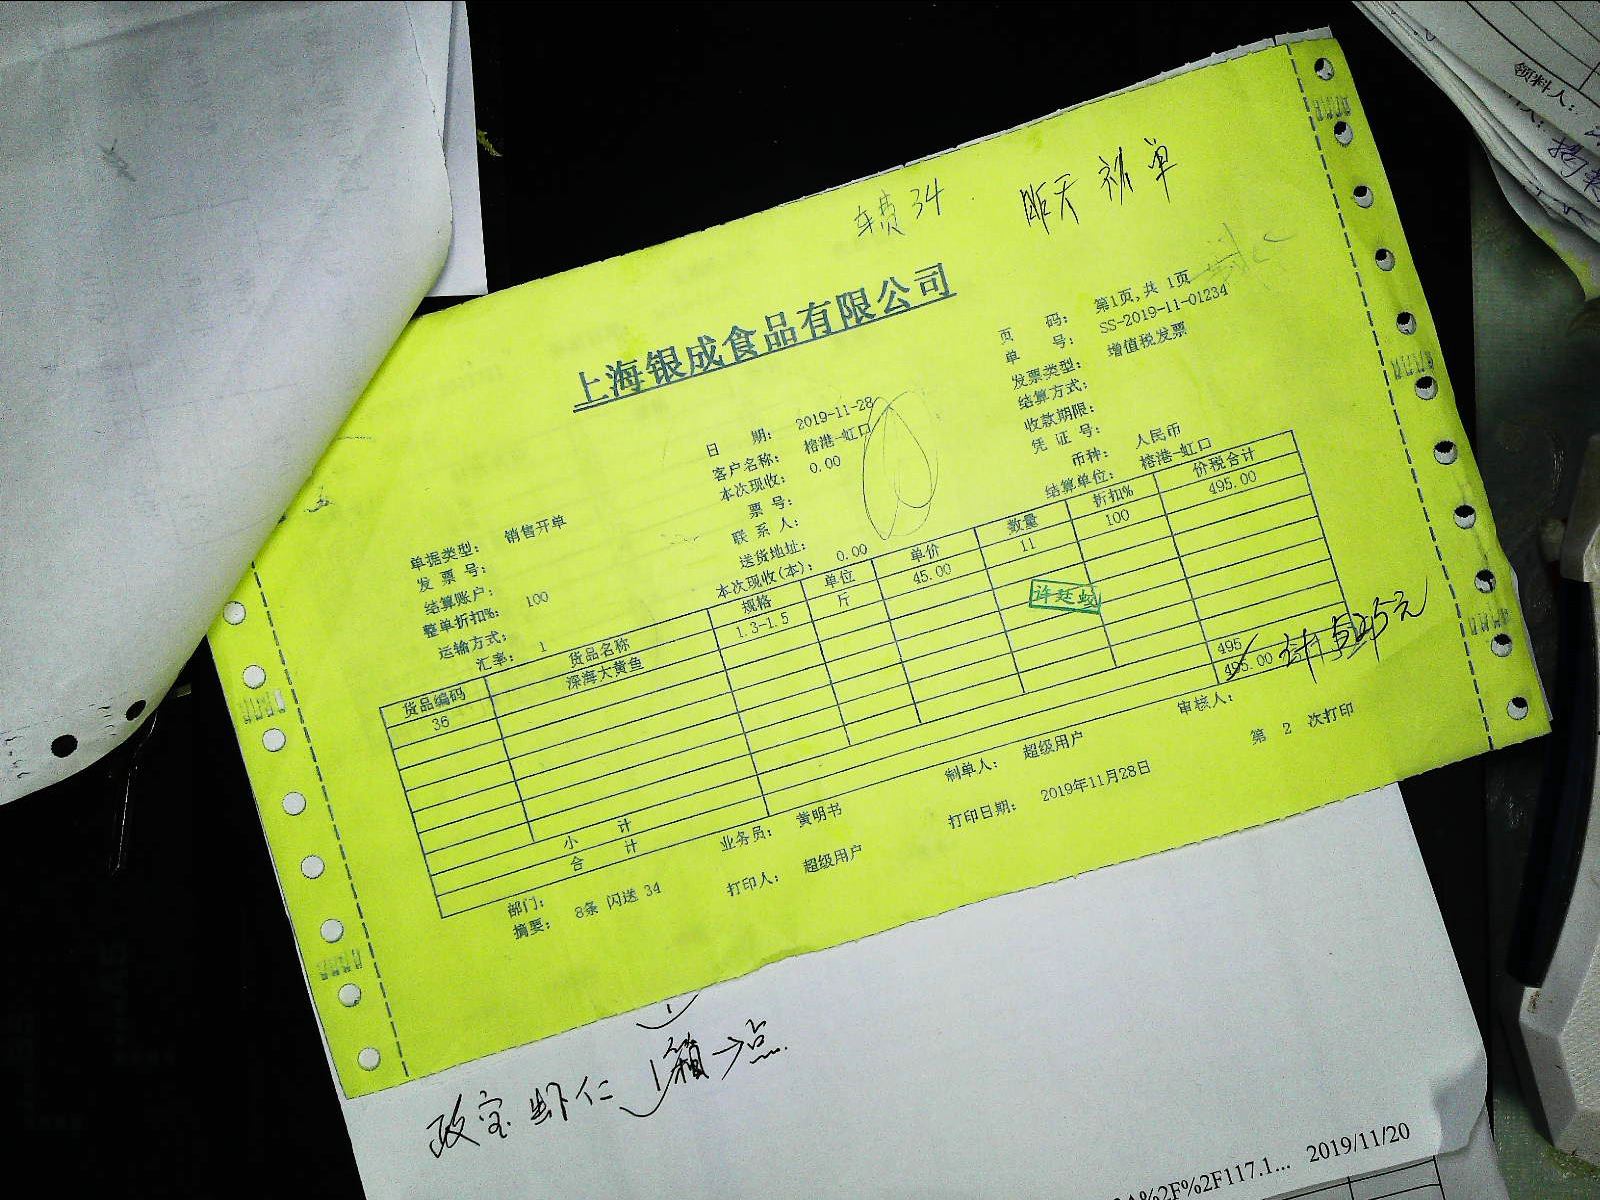 领料人:
车费 34
昨天 补单
上海银成食品有限公司
页 码: 第1页,共 1页
单 号: SS-2019-11-01234
发票类型: 增值税发票
结算方式:
收款期限:
凭 证 号:
币种: 人民币
结算单位: 榕港-虹口
日 期: 2019-11-28
客户名称: 榕港-虹口
本次现收: 0.00
票 号:
联 系 人:
送货地址:
本次现收(本): 0.00
单据类型: 销售开单
发 票 号:
结算账户:
整单折扣%: 100
运输方式:
汇率: 1
货品编码 货品名称 规格 单位 单价 数量 折扣% 价税合计
36 深海大黄鱼 1.3-1.5 斤 45.00 11 100 495.00
许廷蛟
小 计 495
合 计 495.00
部门: 业务员: 黄明书 制单人: 超级用户 审核人:
摘要: 8条 闪送 34 打印人: 超级用户 打印日期: 2019年11月28日 第 2 次打印
政宝虾仁 1箱→点
%2F%2F117.1... 2019/11/20